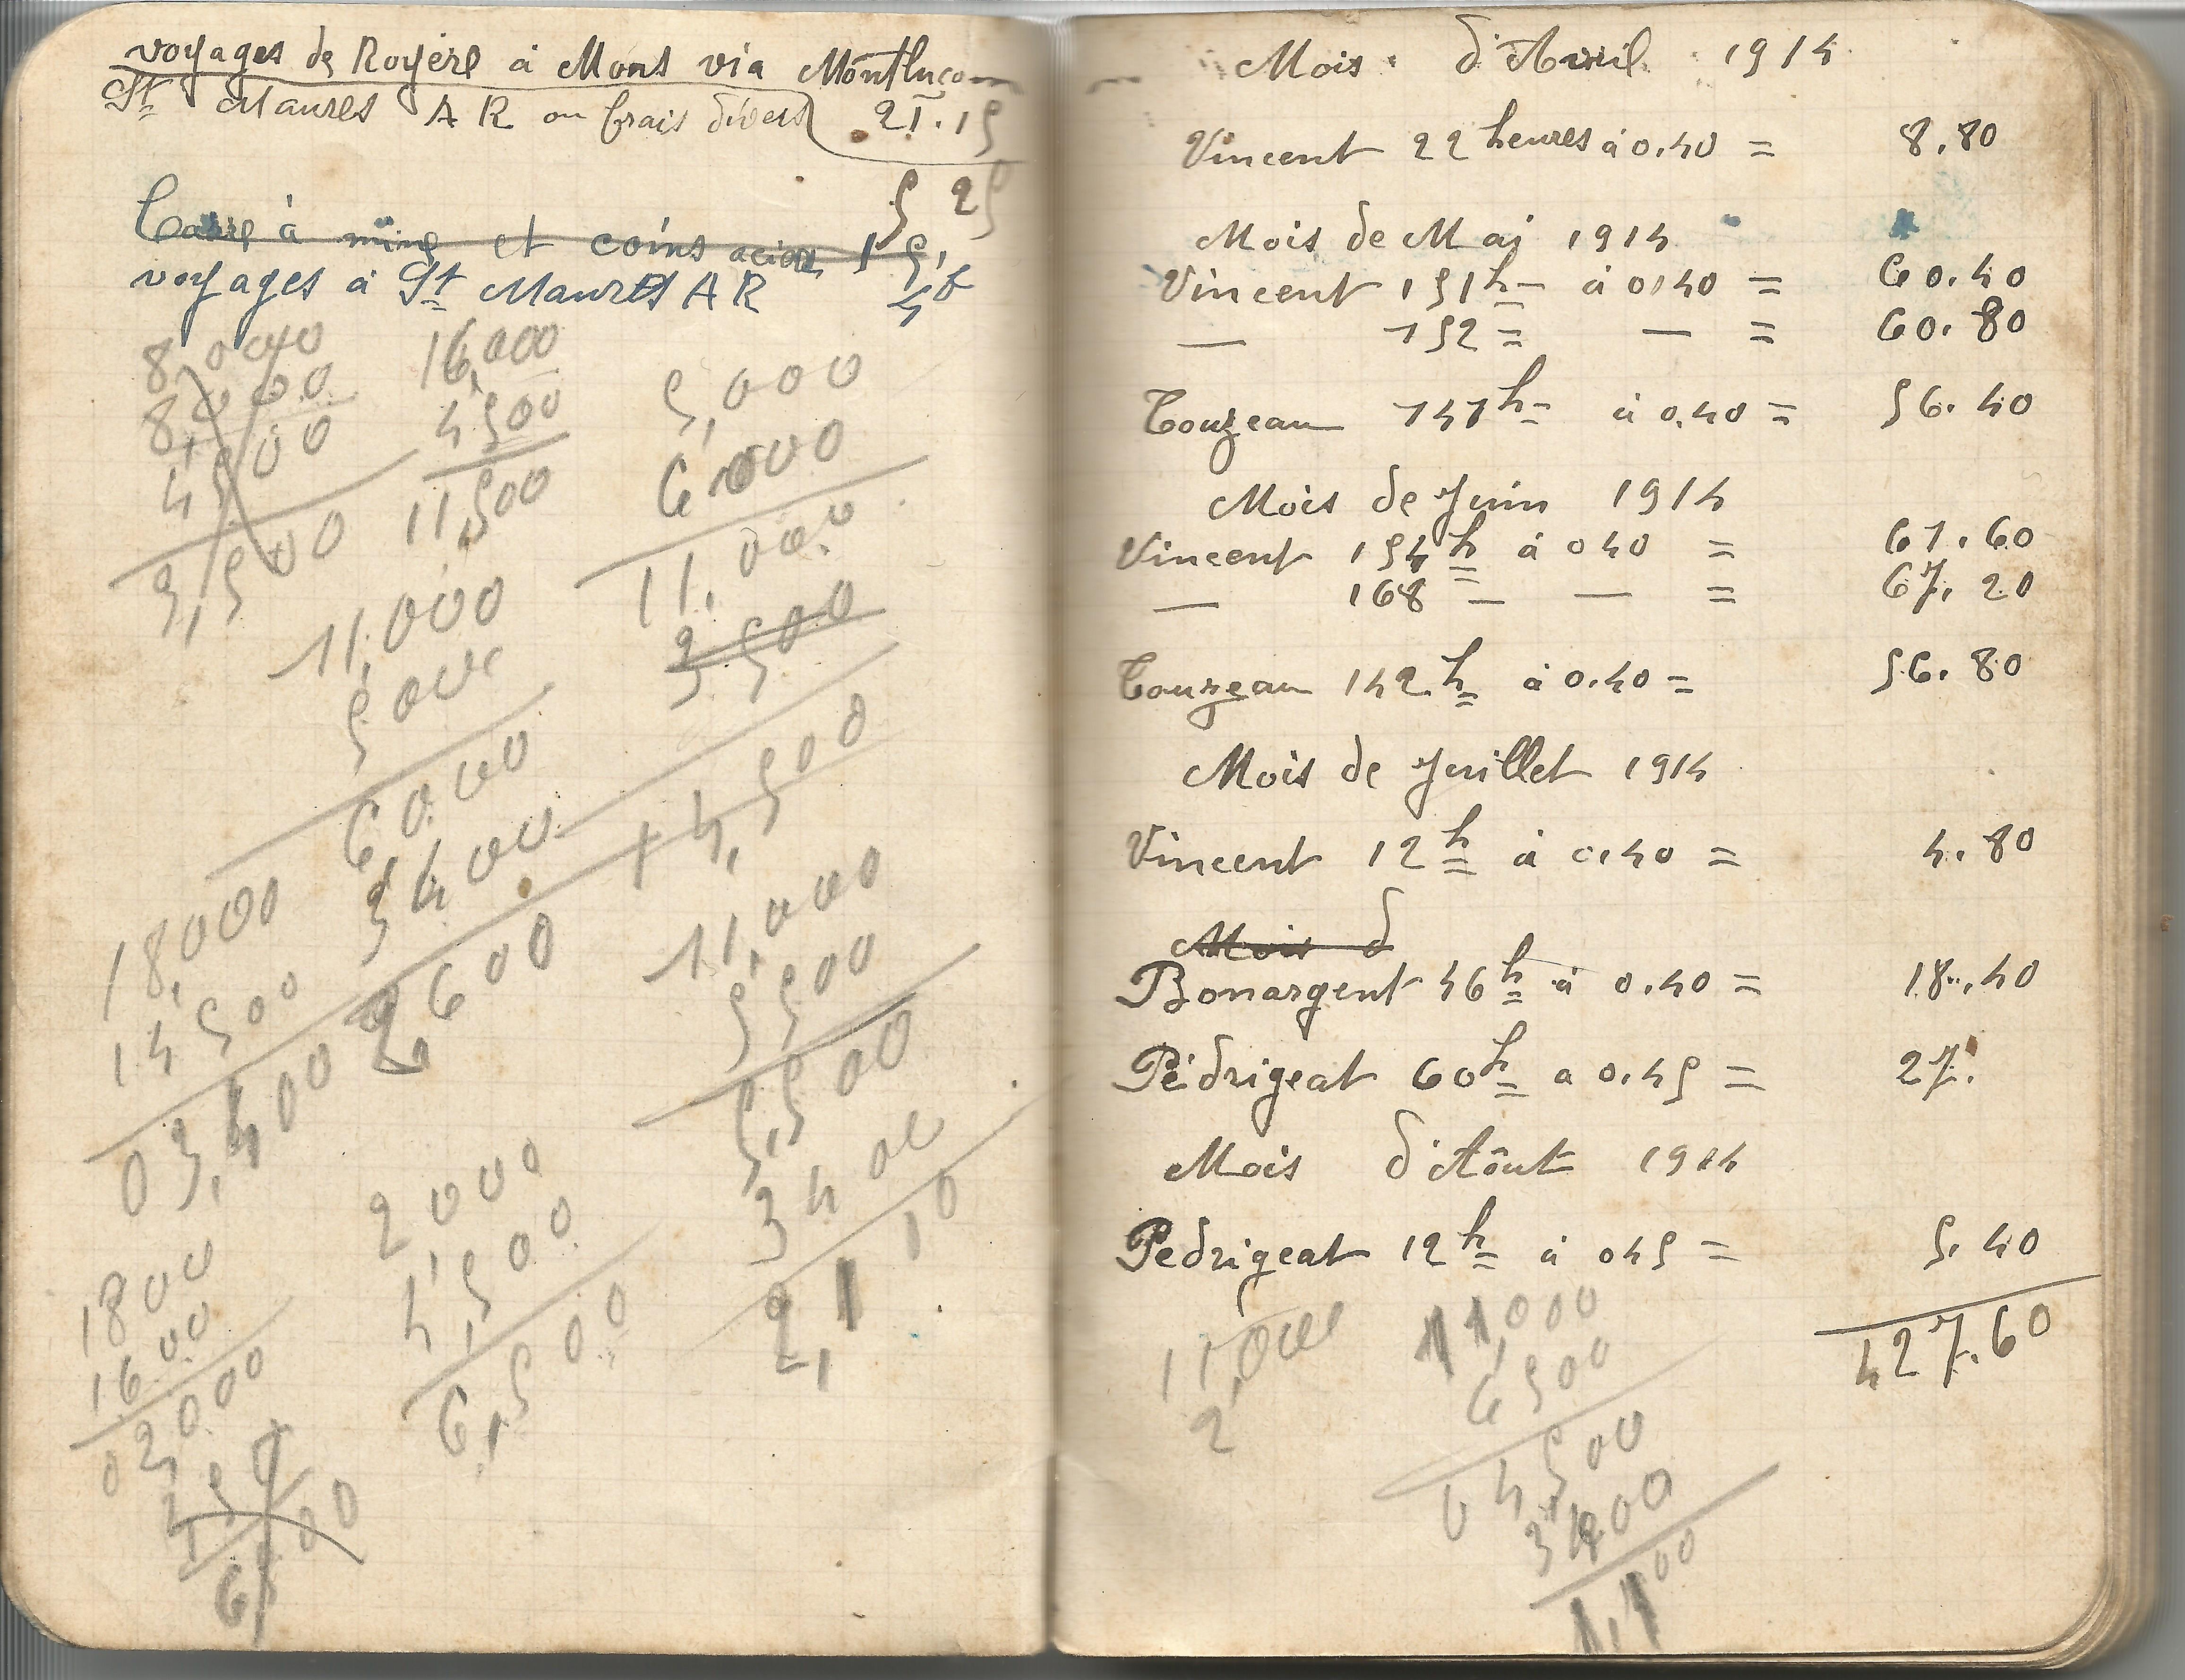 voyages de Royère à Mons via Montluçon
St Maures A R ou frais divers 21.15
5 25
Barre à mine et coins acier 15,
voyages à St Maures A R 4f
8,000
8,000
4,500
3,500
16,000
4,500
11,500
5,000
6,000
11,000
3,500
14,500
11,000
5,000
6,000
3,400
2,600
18,000
14,500
03,500
11,000
5,500
5,500
3400
2,1 10
2000
4,500
6,500
1800
1600
02,000
Mois d'Avril 1914
Vincent 22 heures à 0.40 = 8.80
Mois de Mai 1914
Vincent 151h à 0,40 = 60.40
— 152 = — = 60.80
Touzeau 141h à 0.40 = 56.40
Mois de Juin 1914
Vincent 154h à 040 = 61.60
— 168 — — = 67.20
Touzeau 142h à 0.40 = 56.80
Mois de Juillet 1914
Vincent 12h à 0.40 = 4.80
Mois d
Bonargent 46h à 0.40 = 18.40
Pédrigeat 60h a 0.45 = 27.
Mois d'Aôut 1914
Pedrigeat 12h à 045 = 5.40
427.60
11,000
2
11000
6,500
04500
3400
1,100